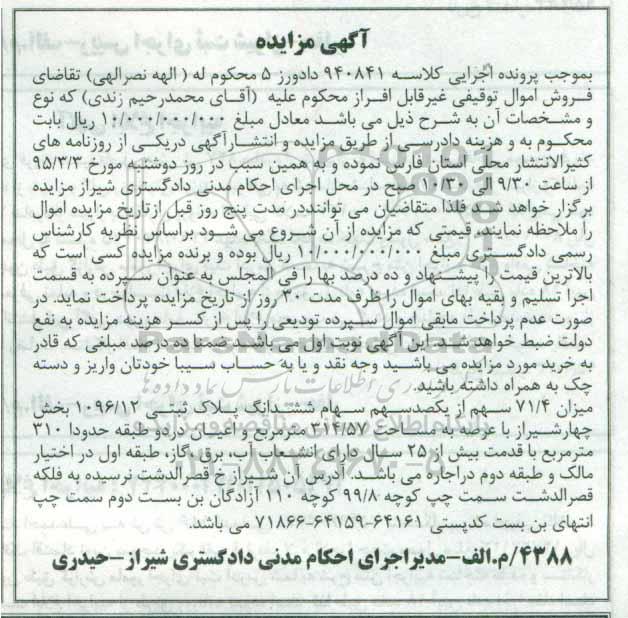 آگهی مزایده
بموجب پرونده اجرایی کلاسه ۹۴۰۸۴۱ دادورز ۵ محکوم له ( الهه نصرالهی) تقاضای
فروش اموال توقیفی غیرقابل افراز محکوم علیه (آقای محمدرحیم زندی) که نوع
و مشخصات آن به شرح ذیل می باشد معادل مبلغ ۱۰/۰۰۰/۰۰۰/۰۰۰ ریال بابت
محکوم به و هزینه دادرسی از طریق مزایده و انتشارآگهی دریکی از روزنامه های
کثیرالانتشار محلی استان فارس نموده و به همین سبب در روز دوشنبه مورخ ۹۵/۳/۳
از ساعت ۹/۳۰ الی ۱۰/۳۰ صبح در محل اجرای احکام مدنی دادگستری شیراز مزایده
برگزار خواهد شد. فلذا متقاضیان می تواننددر مدت پنج روز قبل ازتاریخ مزایده اموال
را ملاحظه نمایند، قیمتی که مزایده از آن شروع می شود براساس نظریه کارشناس
رسمی دادگستری مبلغ ۱۰/۰۰۰/۰۰۰/۰۰۰ ریال بوده و برنده مزایده کسی است که
بالاترین قیمت را پیشنهاد و ده درصد بها را فی المجلس به عنوان سپرده به قسمت
اجرا تسلیم و بقیه بهای اموال را ظرف مدت ۳۰ روز از تاریخ مزایده پرداخت نماید. در
صورت عدم پرداخت مابقی اموال سپرده تودیعی را پس از کسر هزینه مزایده به نفع
دولت ضبط خواهد شد. این آگهی نوبت اول می باشد ضمنا ده درصد مبلغی که قادر
به خرید مورد مزایده می باشید وجه نقد و یا به حساب سیبا خودتان واریز و دسته
چک به همراه داشته باشید.
میزان ۷۱/۴ سهم از یکصدسهم سهام ششدانگ پلاک ثبتی ۱۰۹۶/۱۲ بخش
چهارشیراز با عرصه به مساحت ۳۱۴/۵۷ مترمربع و اعیان دردو طبقه حدودا ۳۱۰
مترمربع با قدمت بیش از ۲۵ سال دارای انشعاب آب، برق، گاز، طبقه اول در اختیار
مالک و طبقه دوم دراجاره می باشد. آدرس آن شیراز خ قصرالدشت نرسیده به فلکه
قصرالدشت سمت چپ کوچه ۹۹/۸ کوچه ۱۱۰ آزادگان بن بست دوم سمت چپ
انتهای بن بست کدپستی ۶۴۱۶۱-۶۴۱۵۹-۷۱۸۶۶ می باشد.
۴۳۸۸/م.الف-مدیراجرای احکام مدنی دادگستری شیراز-حیدری